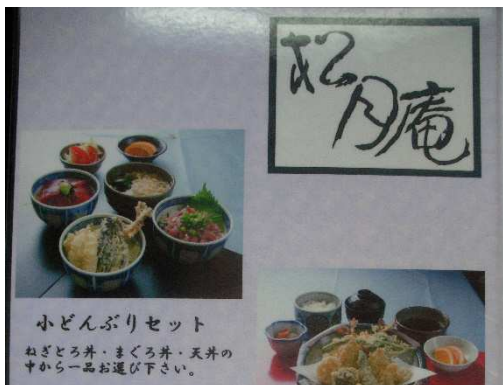 松月庵
小どんぶりセット
ねぎとろ丼・まぐろ丼・天丼の
中から一品お選び下さい。